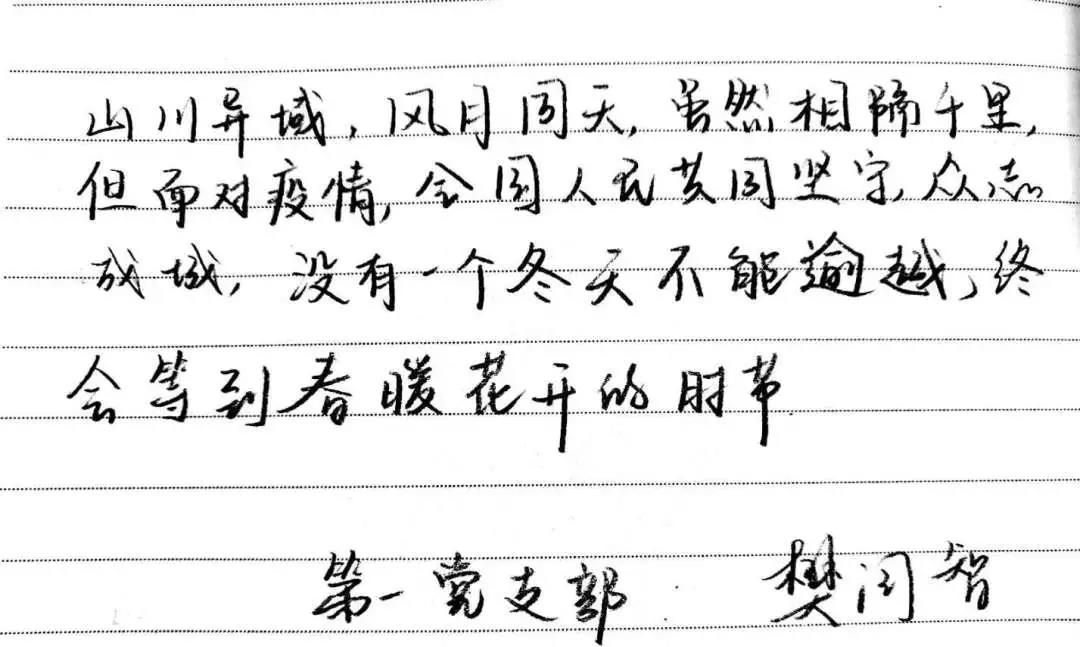 山川异域，风月同天，虽然相隔千里，
但面对疫情，全国人民共同坚守，众志
成城，没有一个冬天不能逾越，终
会等到春暖花开的时节
第一党支部 樊智